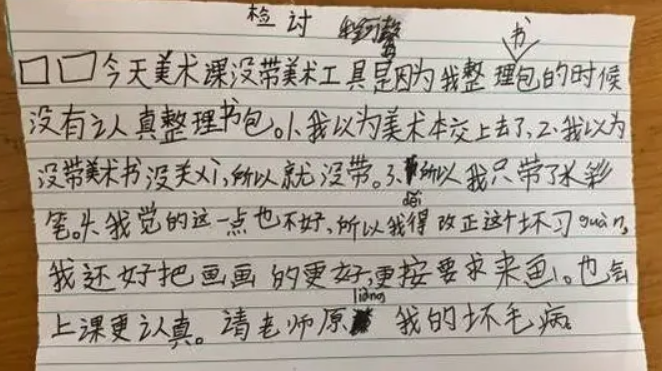 检讨
书
□□今天美术课没带美术工具是因为我整理包的时候
没有认真整理书包。1、我以为美术本交上去了,2、我以为
没带美术书没关xi,所以就没带。3、所以我只带了水彩
笔。我觉的这一点也不好,所以我得 改正这个坏习guàn,
děi
我还好把画画的更好,更按要求来画。也会
liàng
上课更认真。请老师原 我的坏毛病。